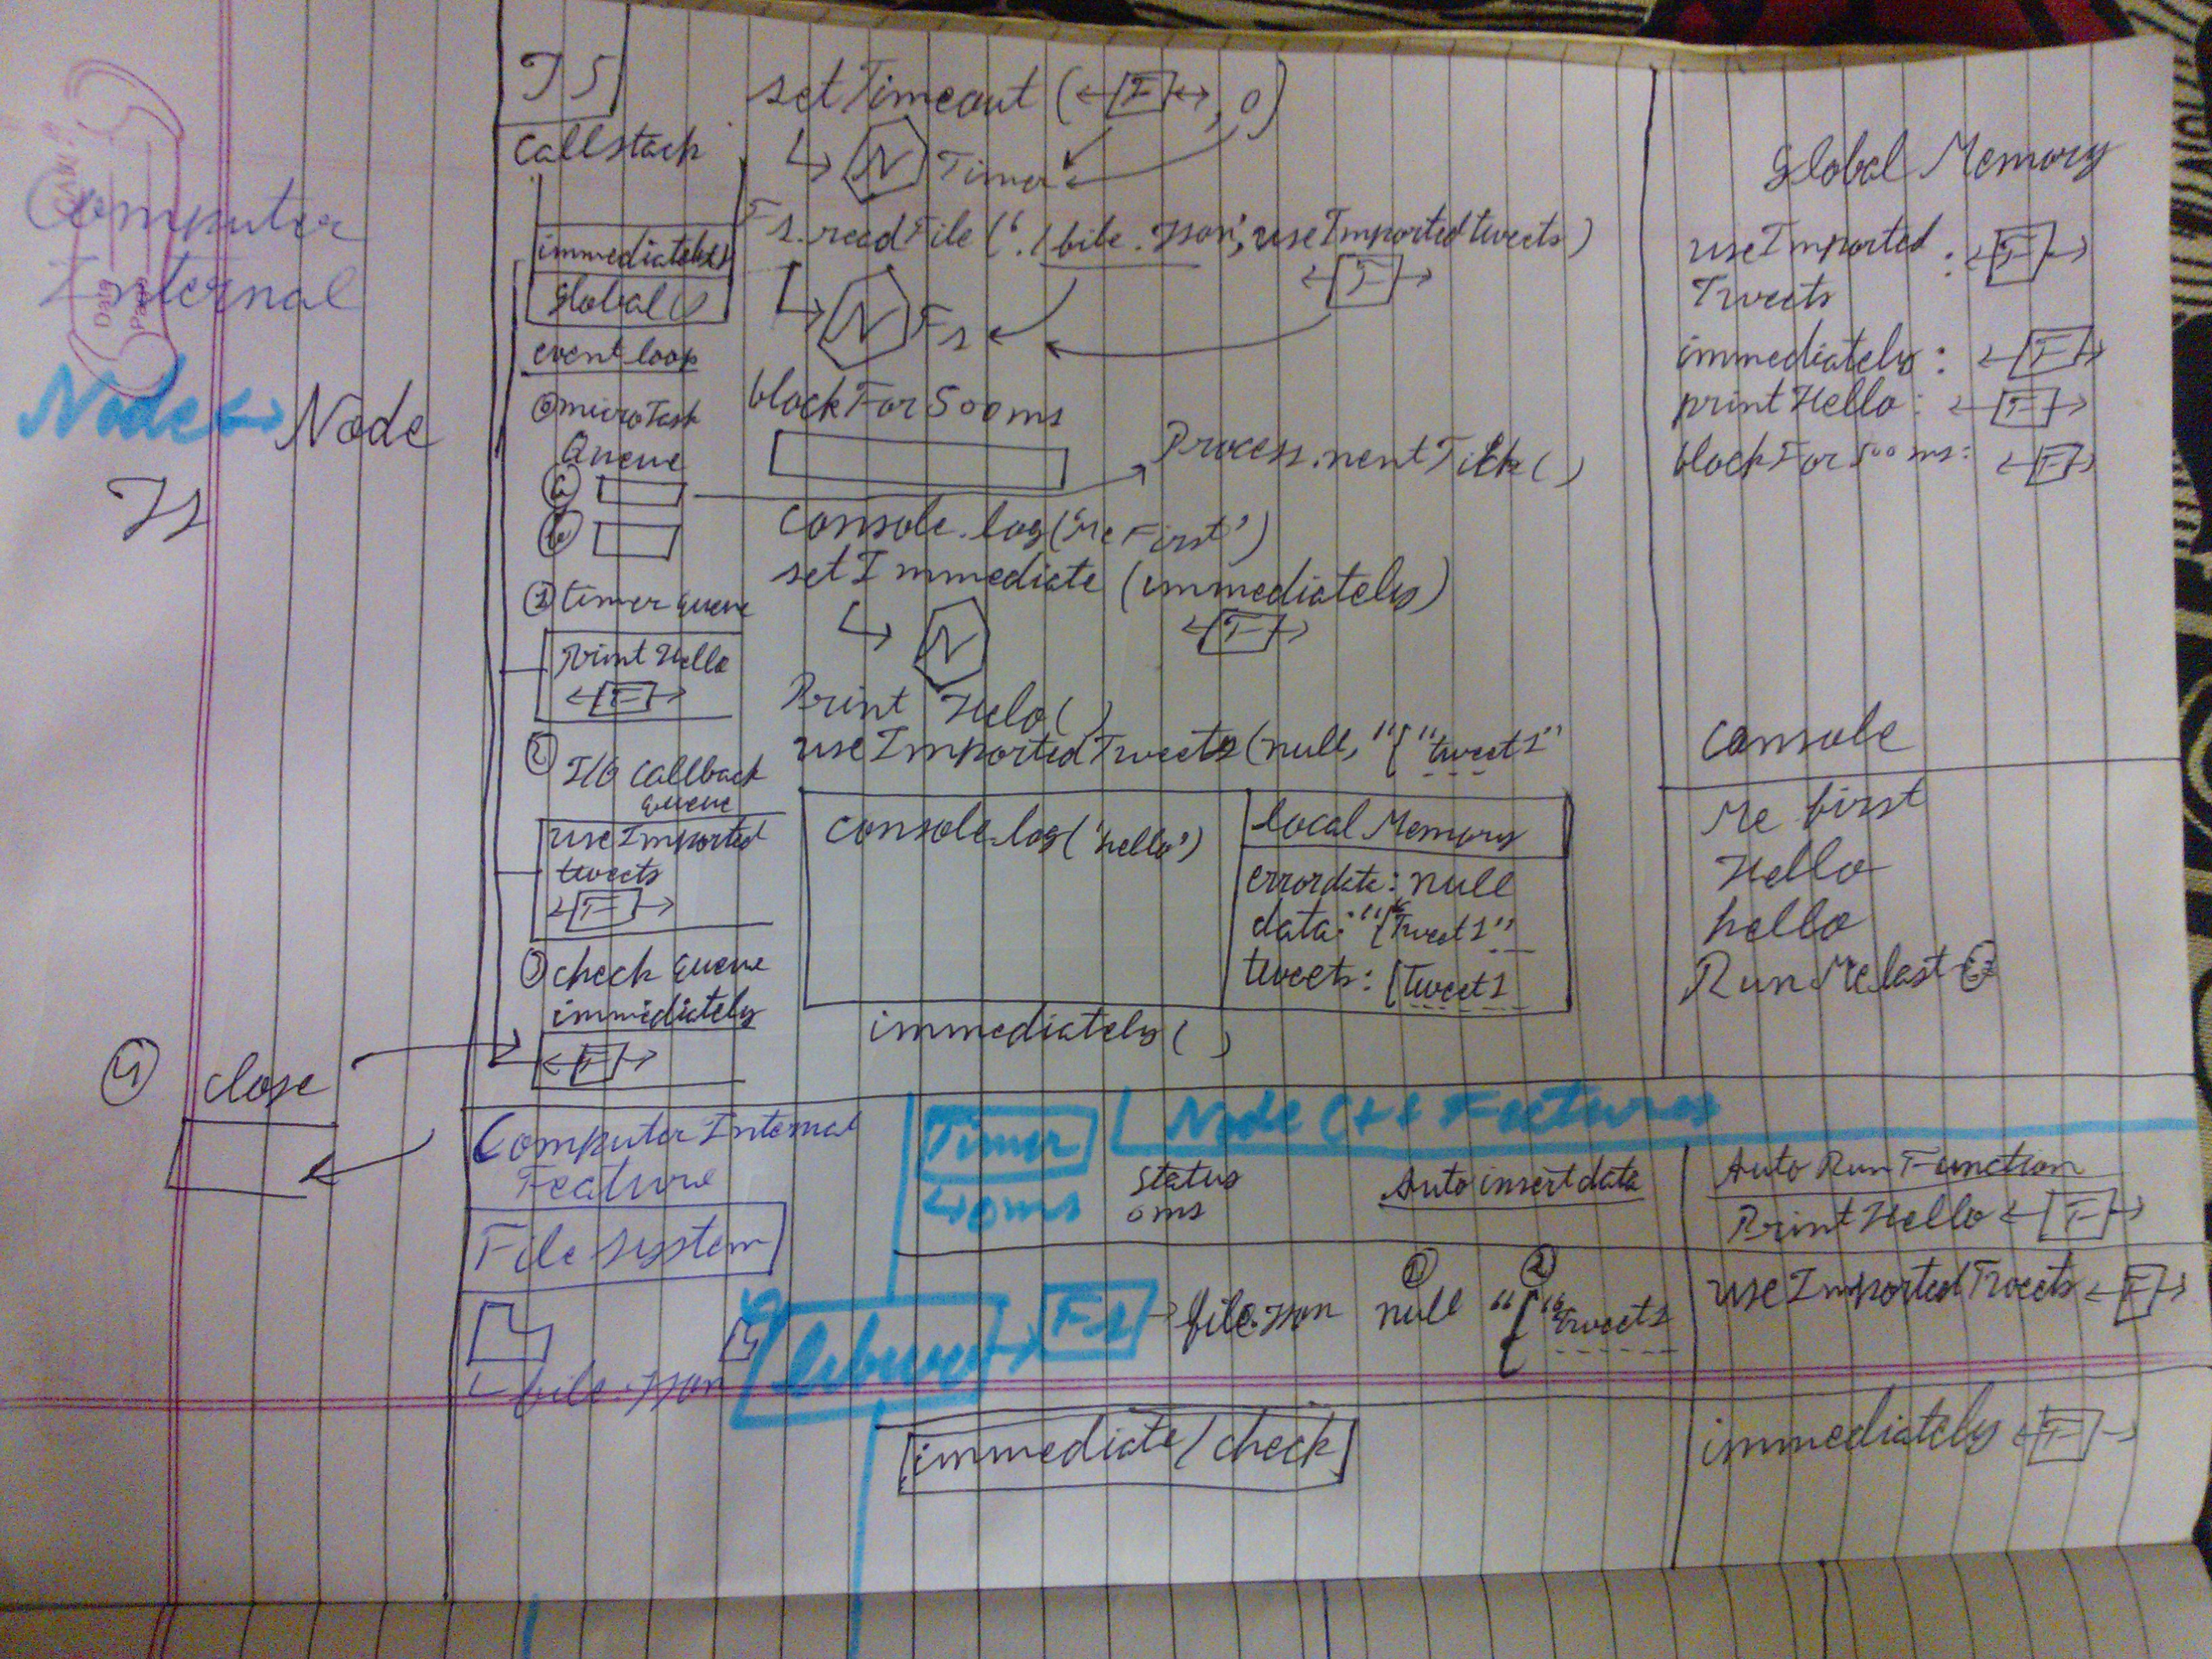 Computer
Internal
Node ↔ Node
JS
Date
Page
JS
Callstack
immediately()
Global()
event loop
⓪ microTask
Queue
ⓐ
ⓑ
① timer queue
Print Hello
←[F]→
② I/O Callback
queue
use Imported
tweets
←[F]→
③ check queue
immediately
←[F]→
④ close
setTimeout (←[F]→, 0)
N Timer
Fs.readFile ('./file.json', useImportedtweets)
←[F]→
N Fs
blockFor500ms
Process.nentTick()
console.log('Me First')
setImmediate (immediately)
N ←[F]→
Print Helo()
useImportedTweets (null, "{"tweet1"
console.log('hello')
local Memory
errordata: null
data: "{"Tweet1"
tweets: {tweet1
immediately ( )
Global Memory
useImported : ←[F]→
Tweets
immediately : ←[F]→
printHello : ←[F]→
blockFor500ms: ←[F]→
Console
Me first
Hello
hello
Run Me last
Computer Internal
Feature
File System
file.json
Node C++ Features
Timer
↳ 0ms
Status
0ms
Auto insert data
Auto Run Function
PrintHello ←[F]→
Fs → file.json null "{"tweet1
① ②
useImportedTweets ←[F]→
immediate/check
immediately ←[F]→